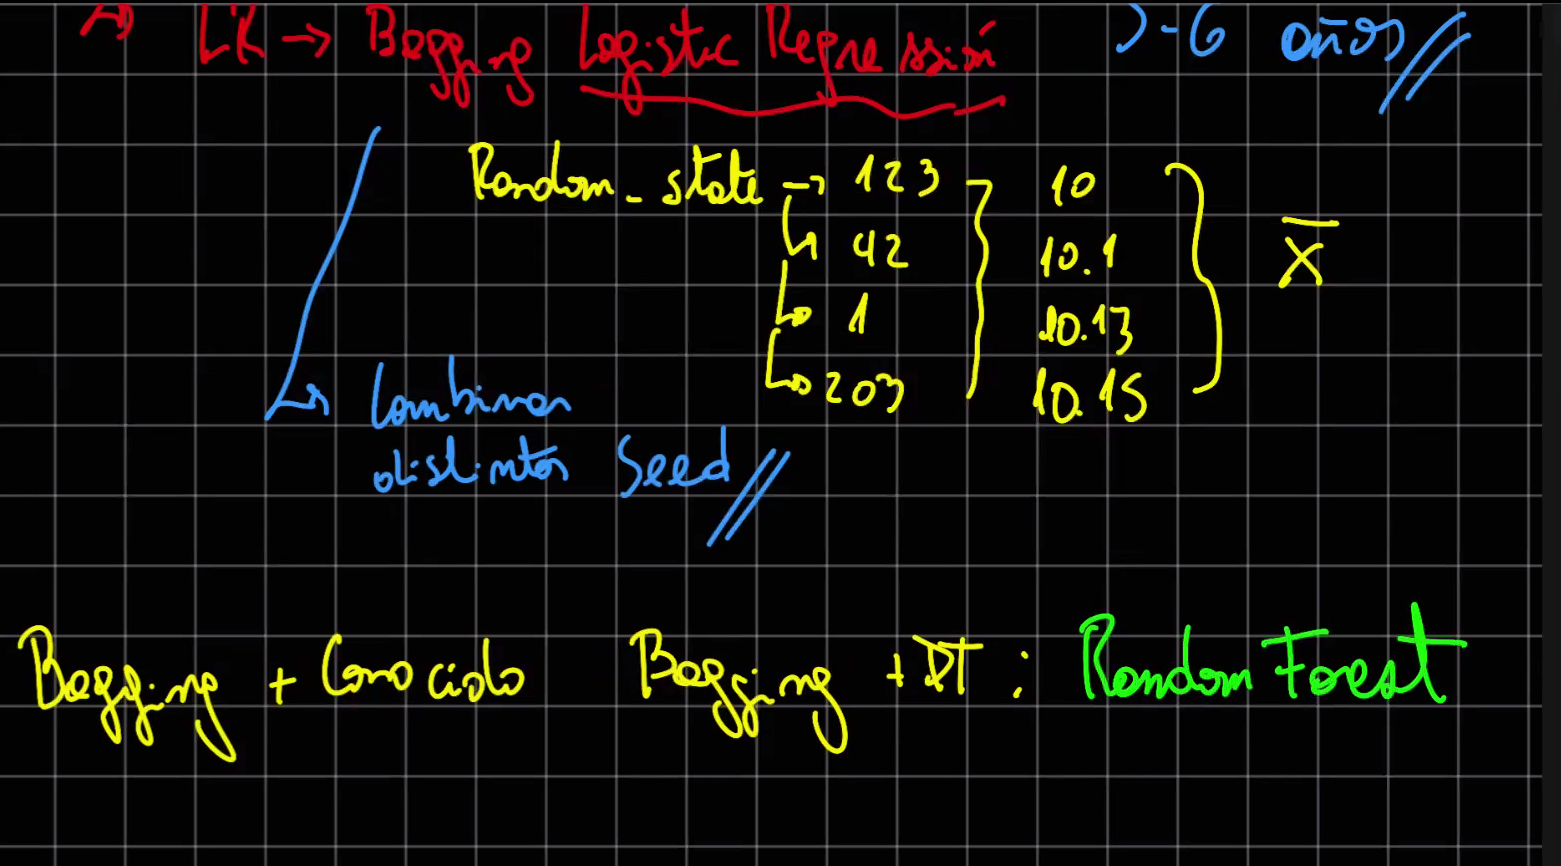 LR → Bagging Logistic Regresión -6 años
Random_state → 123 10
42 10.1
1 10.13
203 10.15
X̄
Combinar
distintas Seed
Bagging + Conocido Bagging + DT : Random Forest